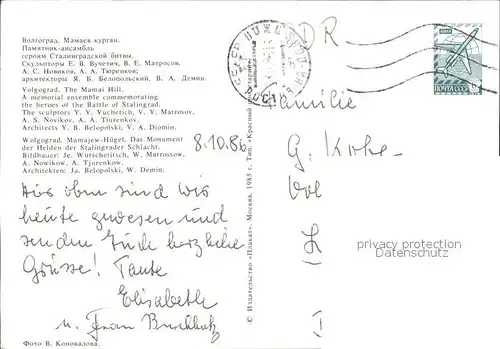 Волгоград. Мамаев курган.
Памятник-ансамбль
героям Сталинградской битвы.
Скульпторы Е. В. Вучетич, В. Е. Матросов,
А. С. Новиков, А. А. Тюренков;
архитекторы Я. Б. Белопольский, В. А. Демин.
Volgograd. The Mamai Hill.
A memorial ensemble commemorating
the heroes of the Battle of Stalingrad.
The sculptors Y. V. Vuchetich, V. Y. Matrosov,
A. S. Novikov, A. A. Tiurenkov,
Architects Y. B. Belopolski, V. A. Diomin.
Wolgograd. Mamajew-Hügel. Das Monument
der Helden der Stalingrader Schlacht.
Bildhauer: Je. Wutschetitsch, W. Matrossow,
A. Nowikow, A. Tjurenkow.
Architekten: Ja. Belopolski, W. Demin.
8.10.86
Aus oben sind wir
heute gewesen und
senden Euch herzliche
Grüsse! Tante
Elisabeth
u. Frau
Фото В. Коновалова.
С. Издательство «Плакат». Москва, 1985 г. Тип. «Красный пролетарий».
АВИА
ПОЧТА СССР
DDR
Familie
G.
privacy protection
Datenschutz